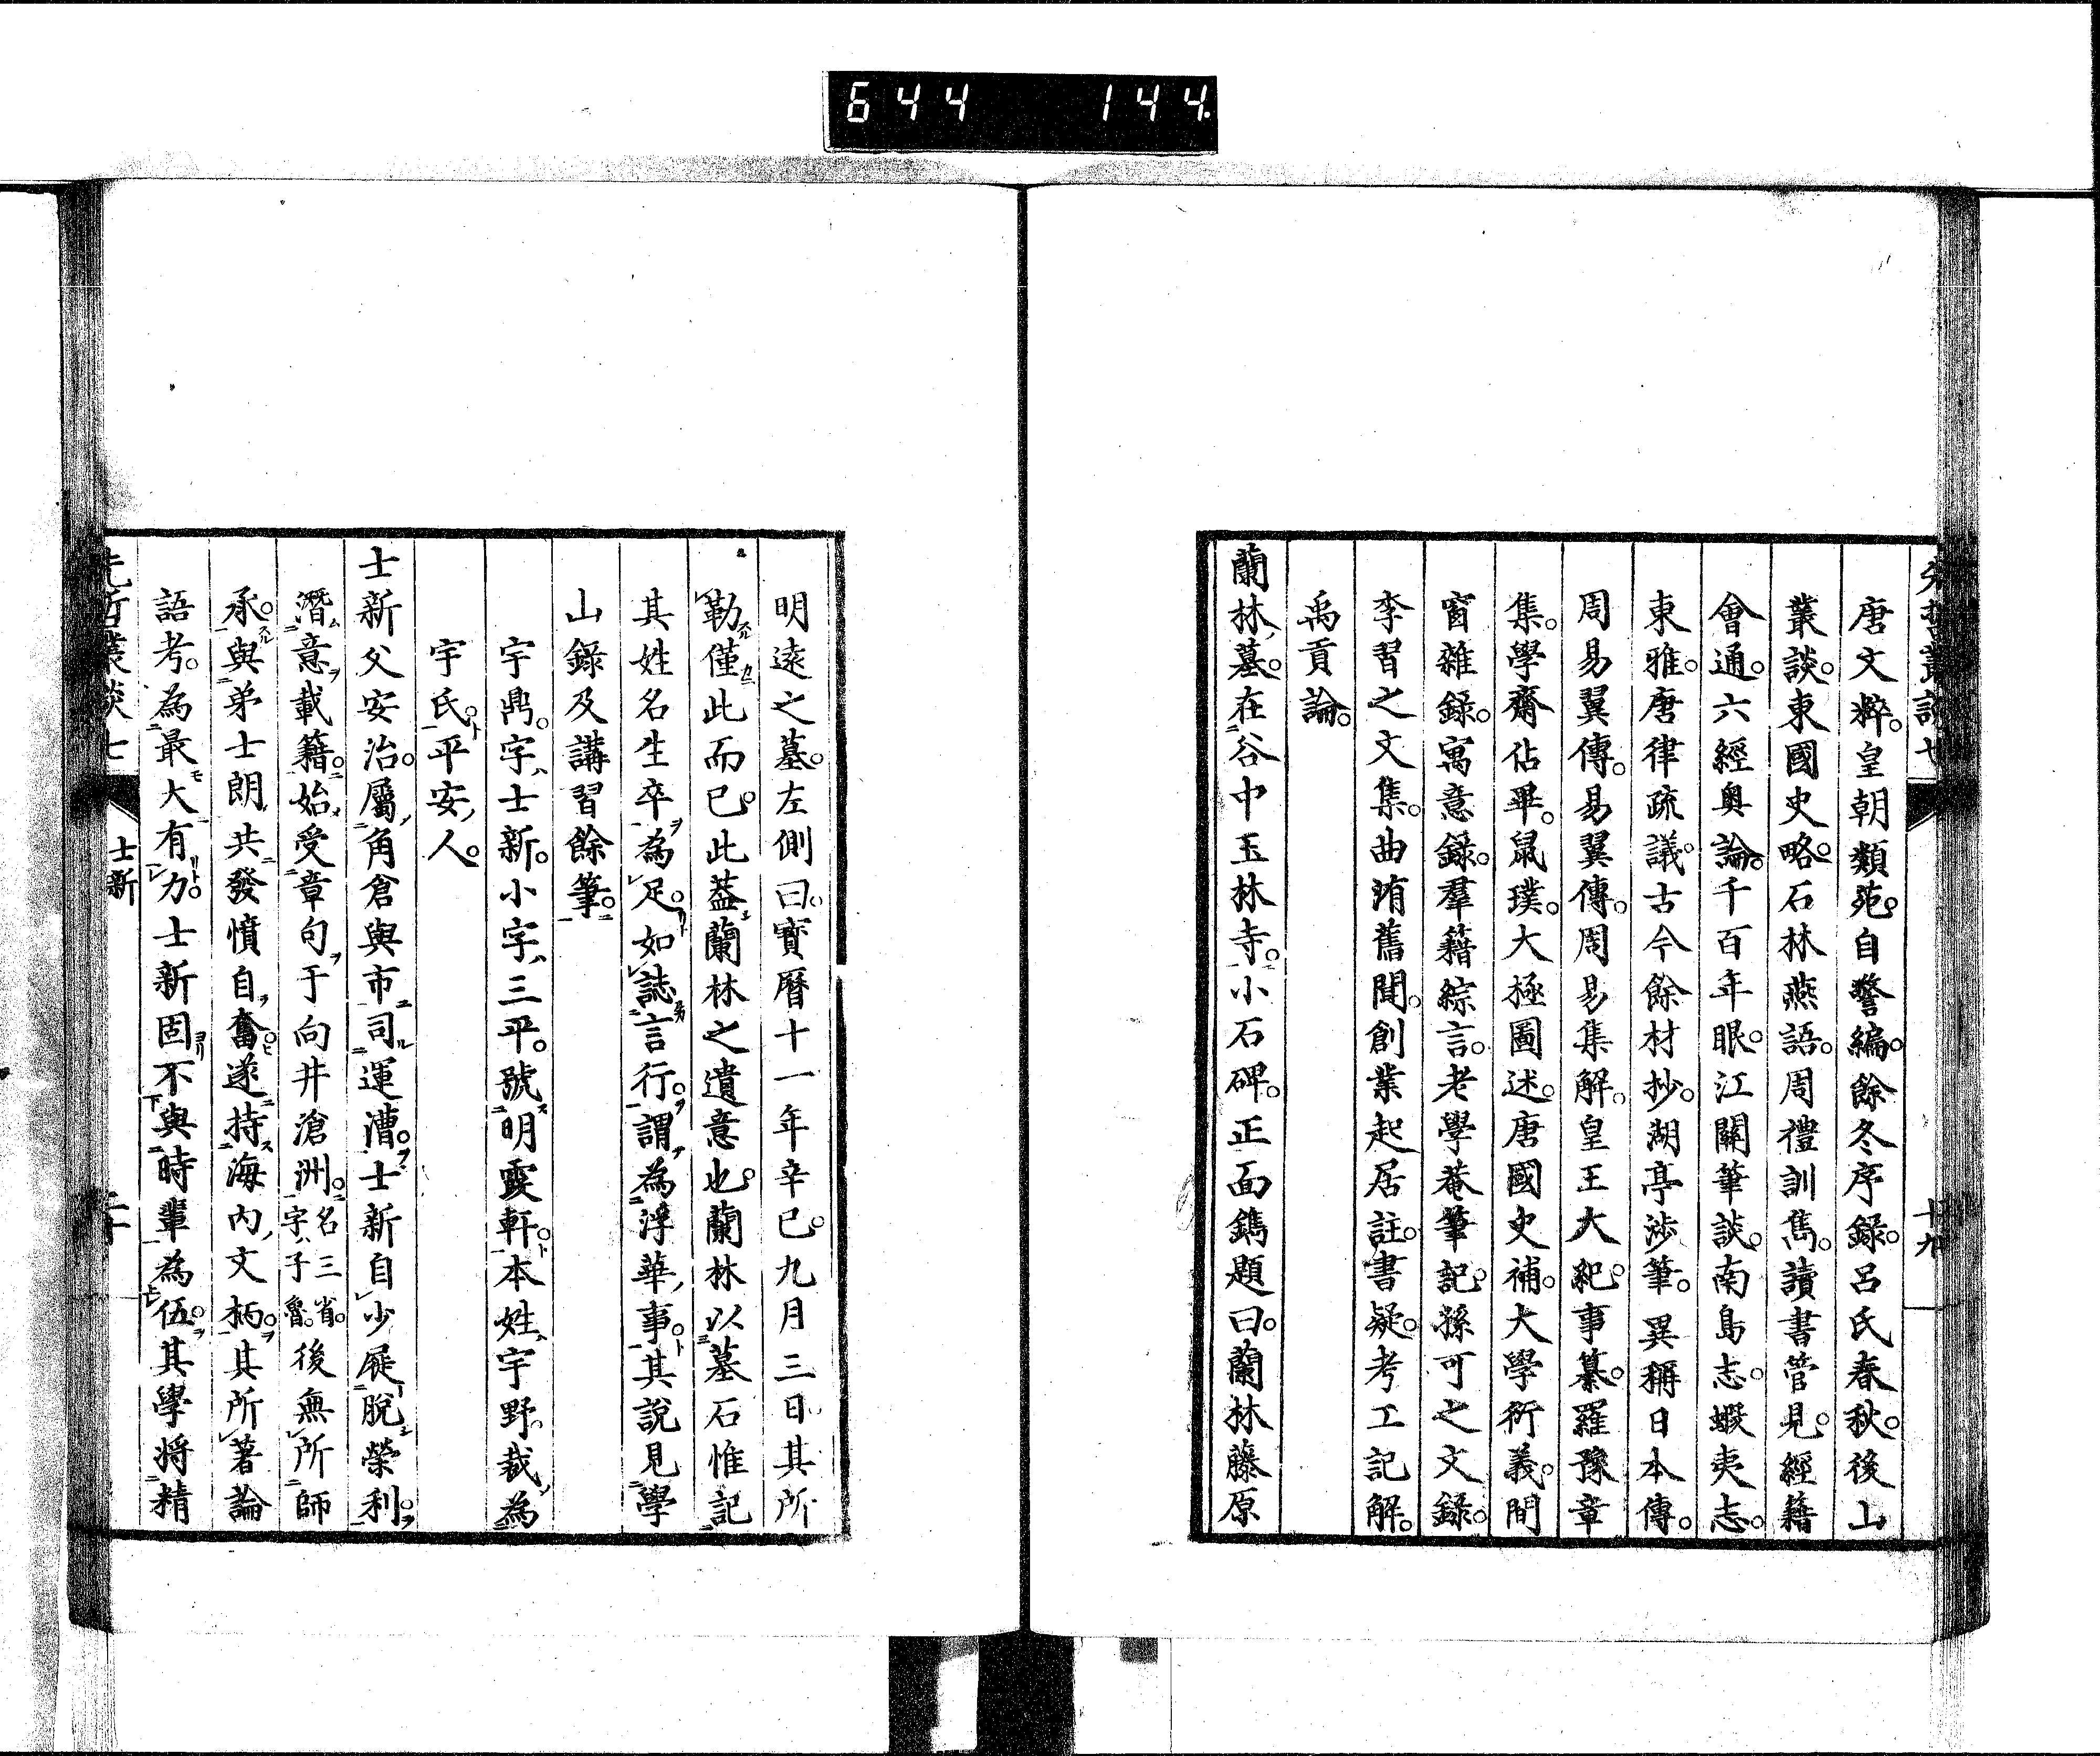 644 144
先哲叢談七 十九
唐文粹。皇朝類苑。自警編。餘冬序録。呂氏春秋。後山
叢談。東國史略。石林燕語。周禮訓雋。讀書管見。經籍
會通。六經奥論。千百年眼。江關筆談。南島志。蝦夷志。
東雅。唐律疏議。古今餘材抄。湖亭渉筆。異稱日本傳。
周易翼傳。易翼傳。周易集解。皇王大紀。事纂。羅豫章
集。學齋佔畢。鼠璞。大極圖述。唐國史補。大學衍義。間
窗雜録。寓意録。羣籍綜言。老學菴筆記。孫可之文録。
李習之文集。曲洧舊聞。創業起居註。書疑。考工記解。
禹貢論。
蘭林墓。在谷中玉林寺。小石碑。正面鐫題曰。蘭林藤原
明遠之墓。左側曰。寳暦十一年辛巳。九月三日其所
勒僅此而已。此葢蘭林之遺意也。蘭林以墓石惟記
其姓名生卒為足。如誌言行。謂為浮華事。其說見學
山錄及講習餘筆。
宇鼎。字士新。小字三平。號明霞軒。本姓宇野。裁為
宇氏。平安人。
士新父安治。屬角倉與市司運漕。士新自少屣脫榮利。
潛意載籍。始受章句于向井滄洲。名三省。字子魯。後無所師
承。與弟士朗共發憤自奮。遂持海内文柄。其所著論
語考。為最大有力。士新固不與時輩為伍。其學将精
先哲叢談七 士新 二十